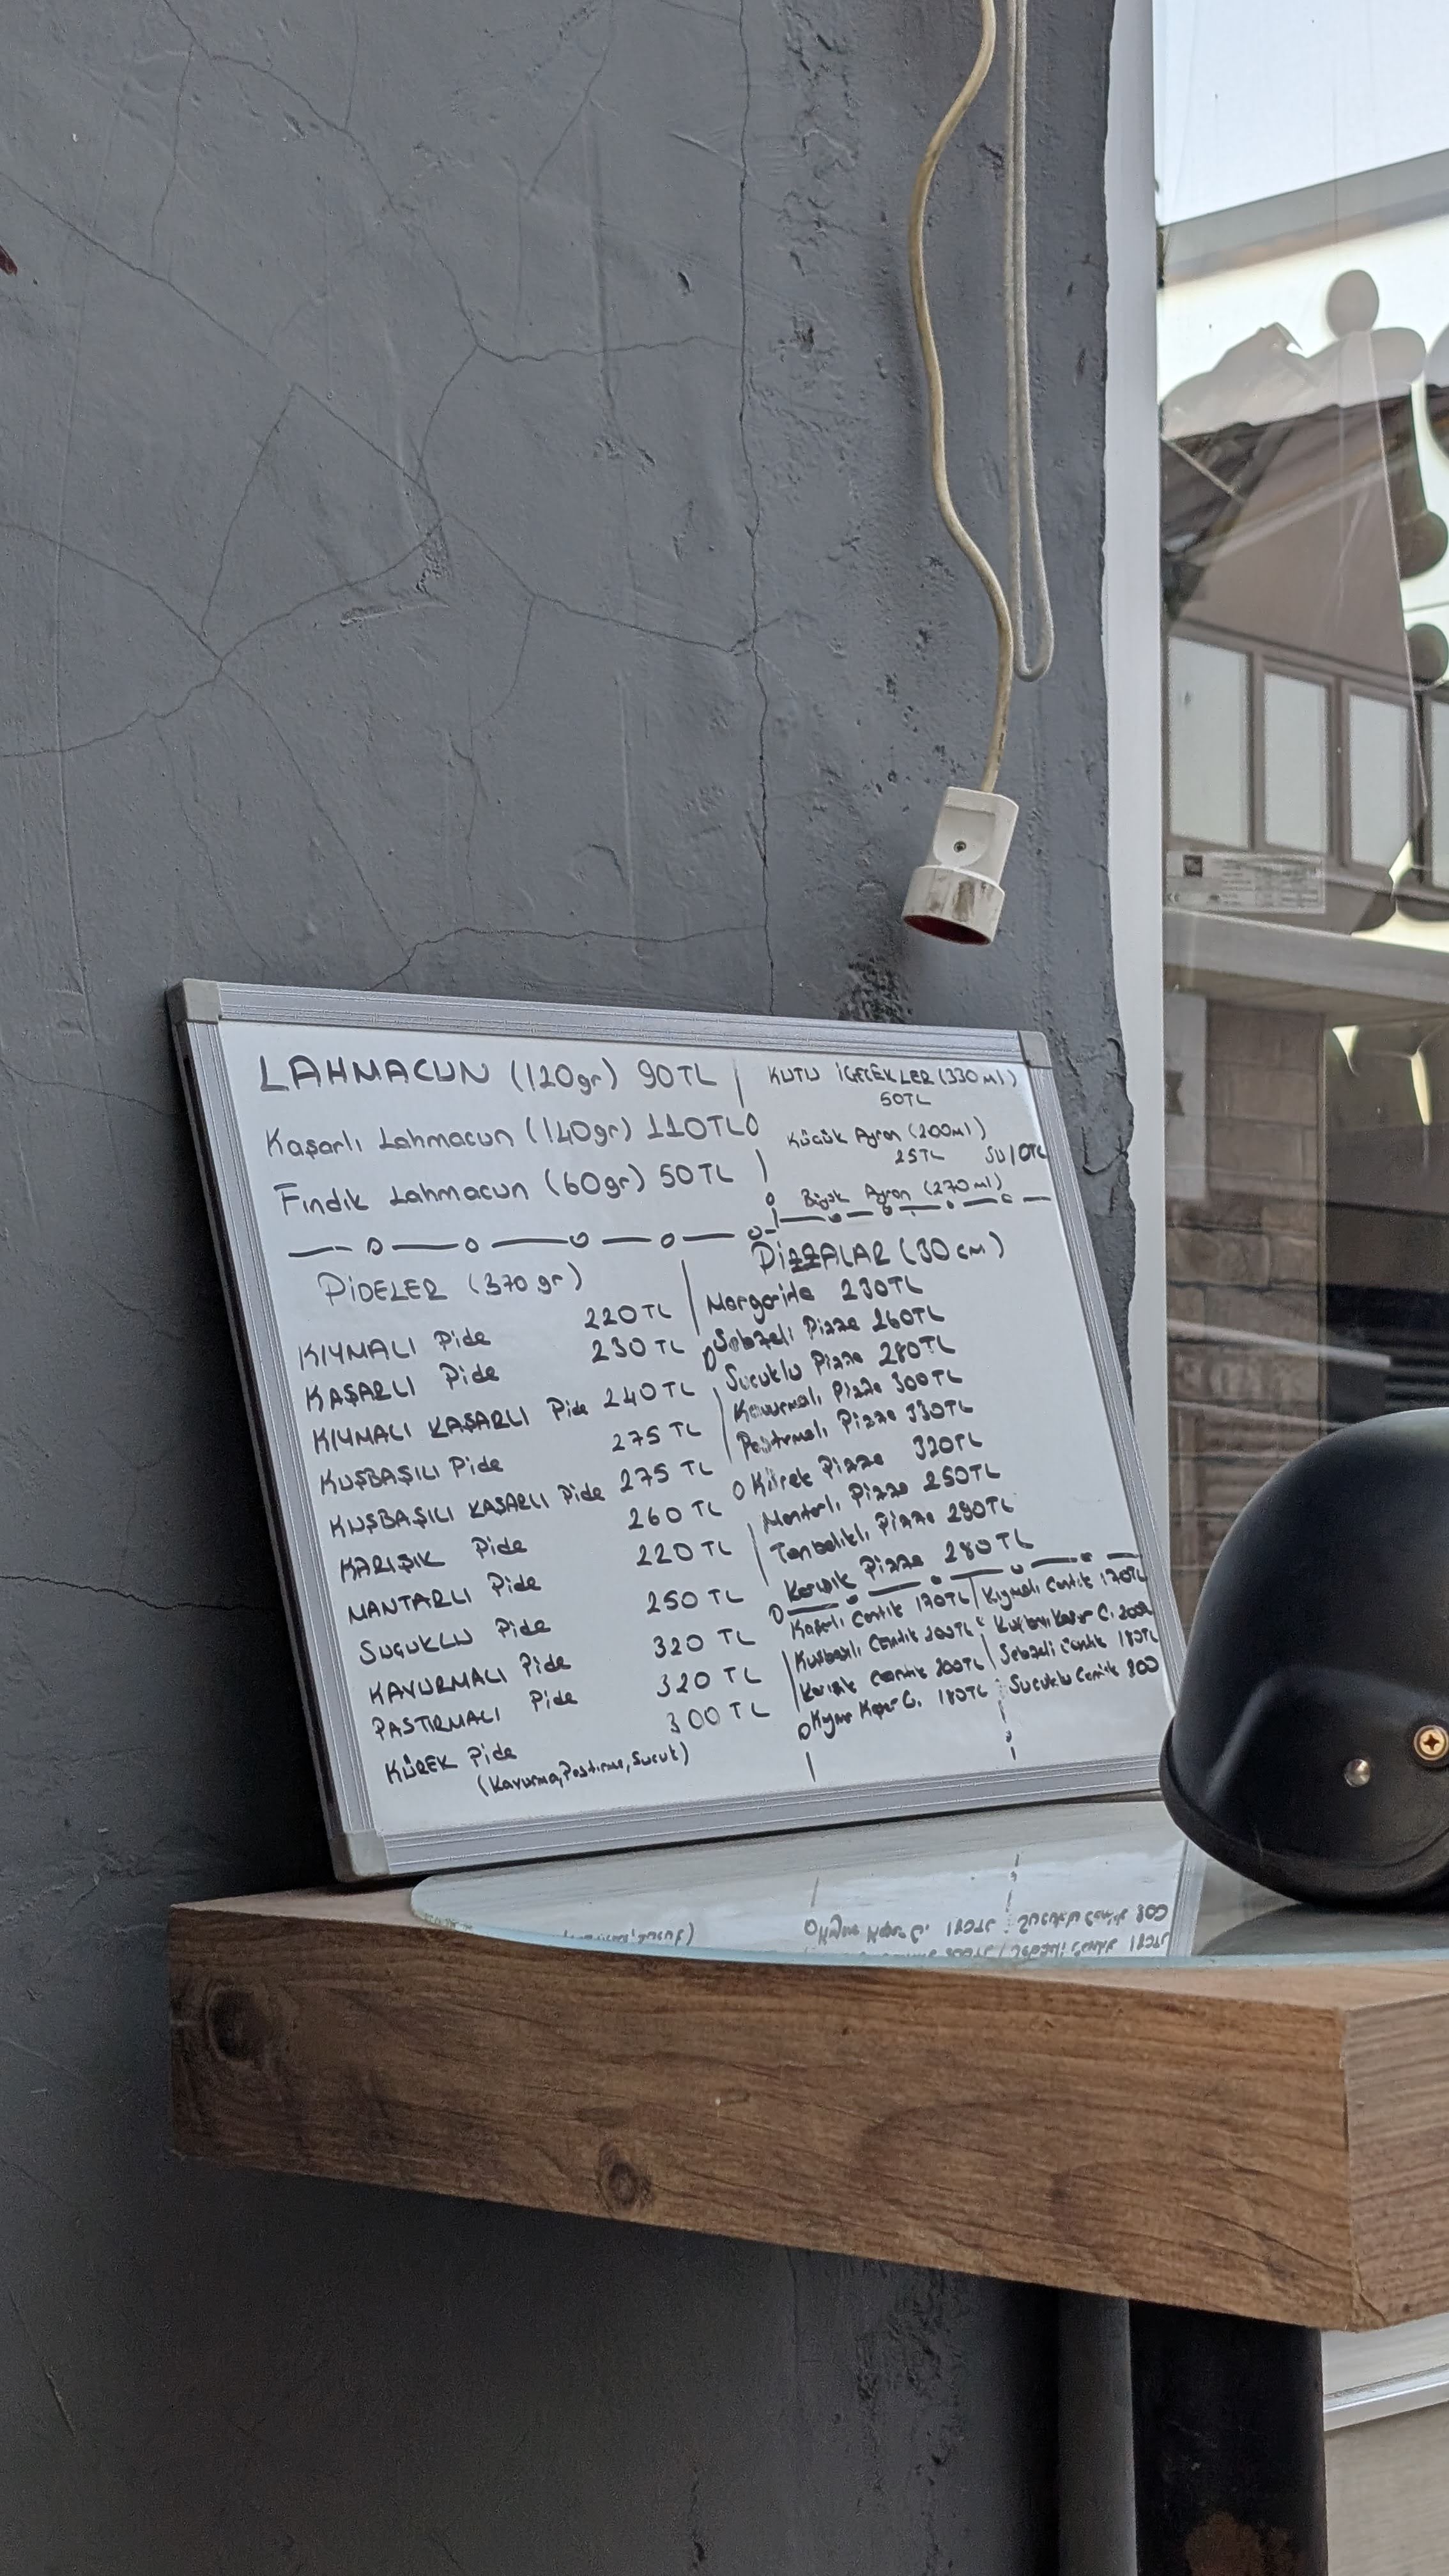 LAHMACUN (120gr) 90TL
Kaşarlı Lahmacun (140gr) 110TL
Fındık Lahmacun (60gr) 50TL
KUTU İÇECEKLER (330ml)
50TL
Küçük Ayran (200ml)
25TL SU 10TL
Büyük Ayran (270ml)
PİDELER (370gr)
KIYMALI Pide 220TL
KAŞARLI Pide 230TL
KIYMALI KAŞARLI Pide 240TL
KUŞBAŞILI Pide 275TL
KUŞBAŞILI KAŞARLI Pide 275TL
KARIŞIK Pide 260TL
MANTARLI Pide 220TL
SUCUKLU Pide 250TL
KAVURMALI Pide 320TL
PASTIRMALI Pide 320TL
KÜREK Pide 300TL
(Kavurma, Pastırma, Sucuk)
PİZZALAR (30cm)
Margarita 230TL
Sebzeli Pizza 260TL
Sucuklu Pizza 280TL
Kavurmalı Pizza 300TL
Pastırmalı Pizza 330TL
Kürek Pizza 320TL
Mantarlı Pizza 250TL
Tonbalıklı Pizza 290TL
Karışık Pizza 280TL
Kaşarlı Cantık 170TL Kıymalı Cantık 170TL
Kuşbaşılı Cantık 200TL Kuşbaşı Kaşar C. 200
Karışık Cantık 200TL Sebzeli Cantık 180TL
Kıyma Kaşar C. 180TL Sucuklu Cantık 200